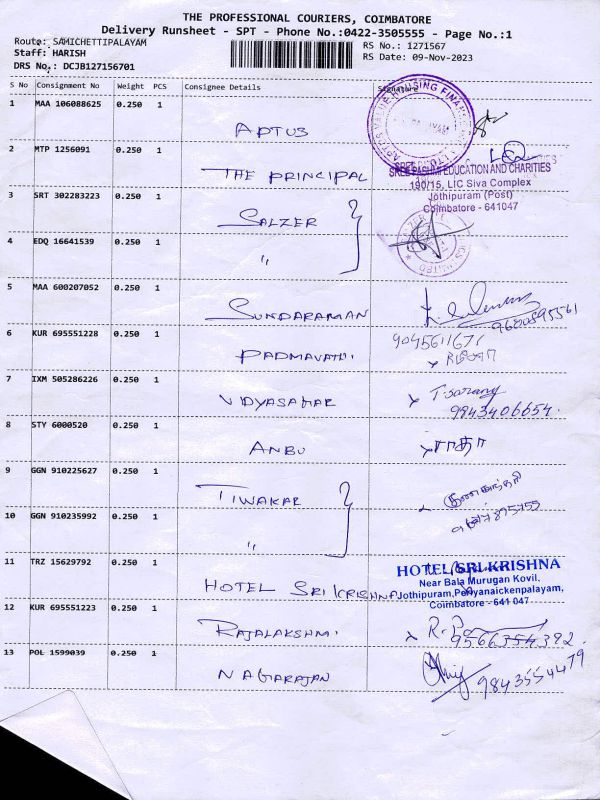 THE PROFESSIONAL COURIERS, COIMBATORE
Delivery Runsheet - SPT - Phone No.:0422-3505555 - Page No.:1
Route: SAMICHETTIPALAYAM
Staff: HARISH
DRS No.: DCJB127156701
RS No.: 1271567
RS Date: 09-Nov-2023
S No Consignment No Weight PCS Consignee Details Signature
1 MAA 106088625 0.250 1 APTUS
2 MTP 1256091 0.250 1 THE PRINCIPAL
EDUCATION AND CHARITIES
190/15, LIC Siva Complex
Jothipuram (Post)
Coimbatore - 641047
3 SRT 302283223 0.250 1 SALZER
4 EDQ 16641539 0.250 1 "
5 MAA 600207052 0.250 1 SUNDARAMAN
9600895561
6 KUR 695551228 0.250 1 PADMAVATHI
9045611671
7 IXM 505286226 0.250 1 VIDYASAGAR
T. Sarang
9943406654.
8 STY 6000520 0.250 1 ANBU ராதா
9 GGN 910225627 0.250 1 TIWAKAR
10 GGN 910235992 0.250 1 "
11 TRZ 15629792 0.250 1 HOTEL SRI KRISHNA
HOTEL SRI KRISHNA
Near Bala Murugan Kovil.
Jothipuram, Periyanaickenpalayam,
Coimbatore - 641 047
12 KUR 695551223 0.250 1 RAJALAKSHMI
9566354392
13 POL 1599039 0.250 1 NAGARAJAN
9843554479